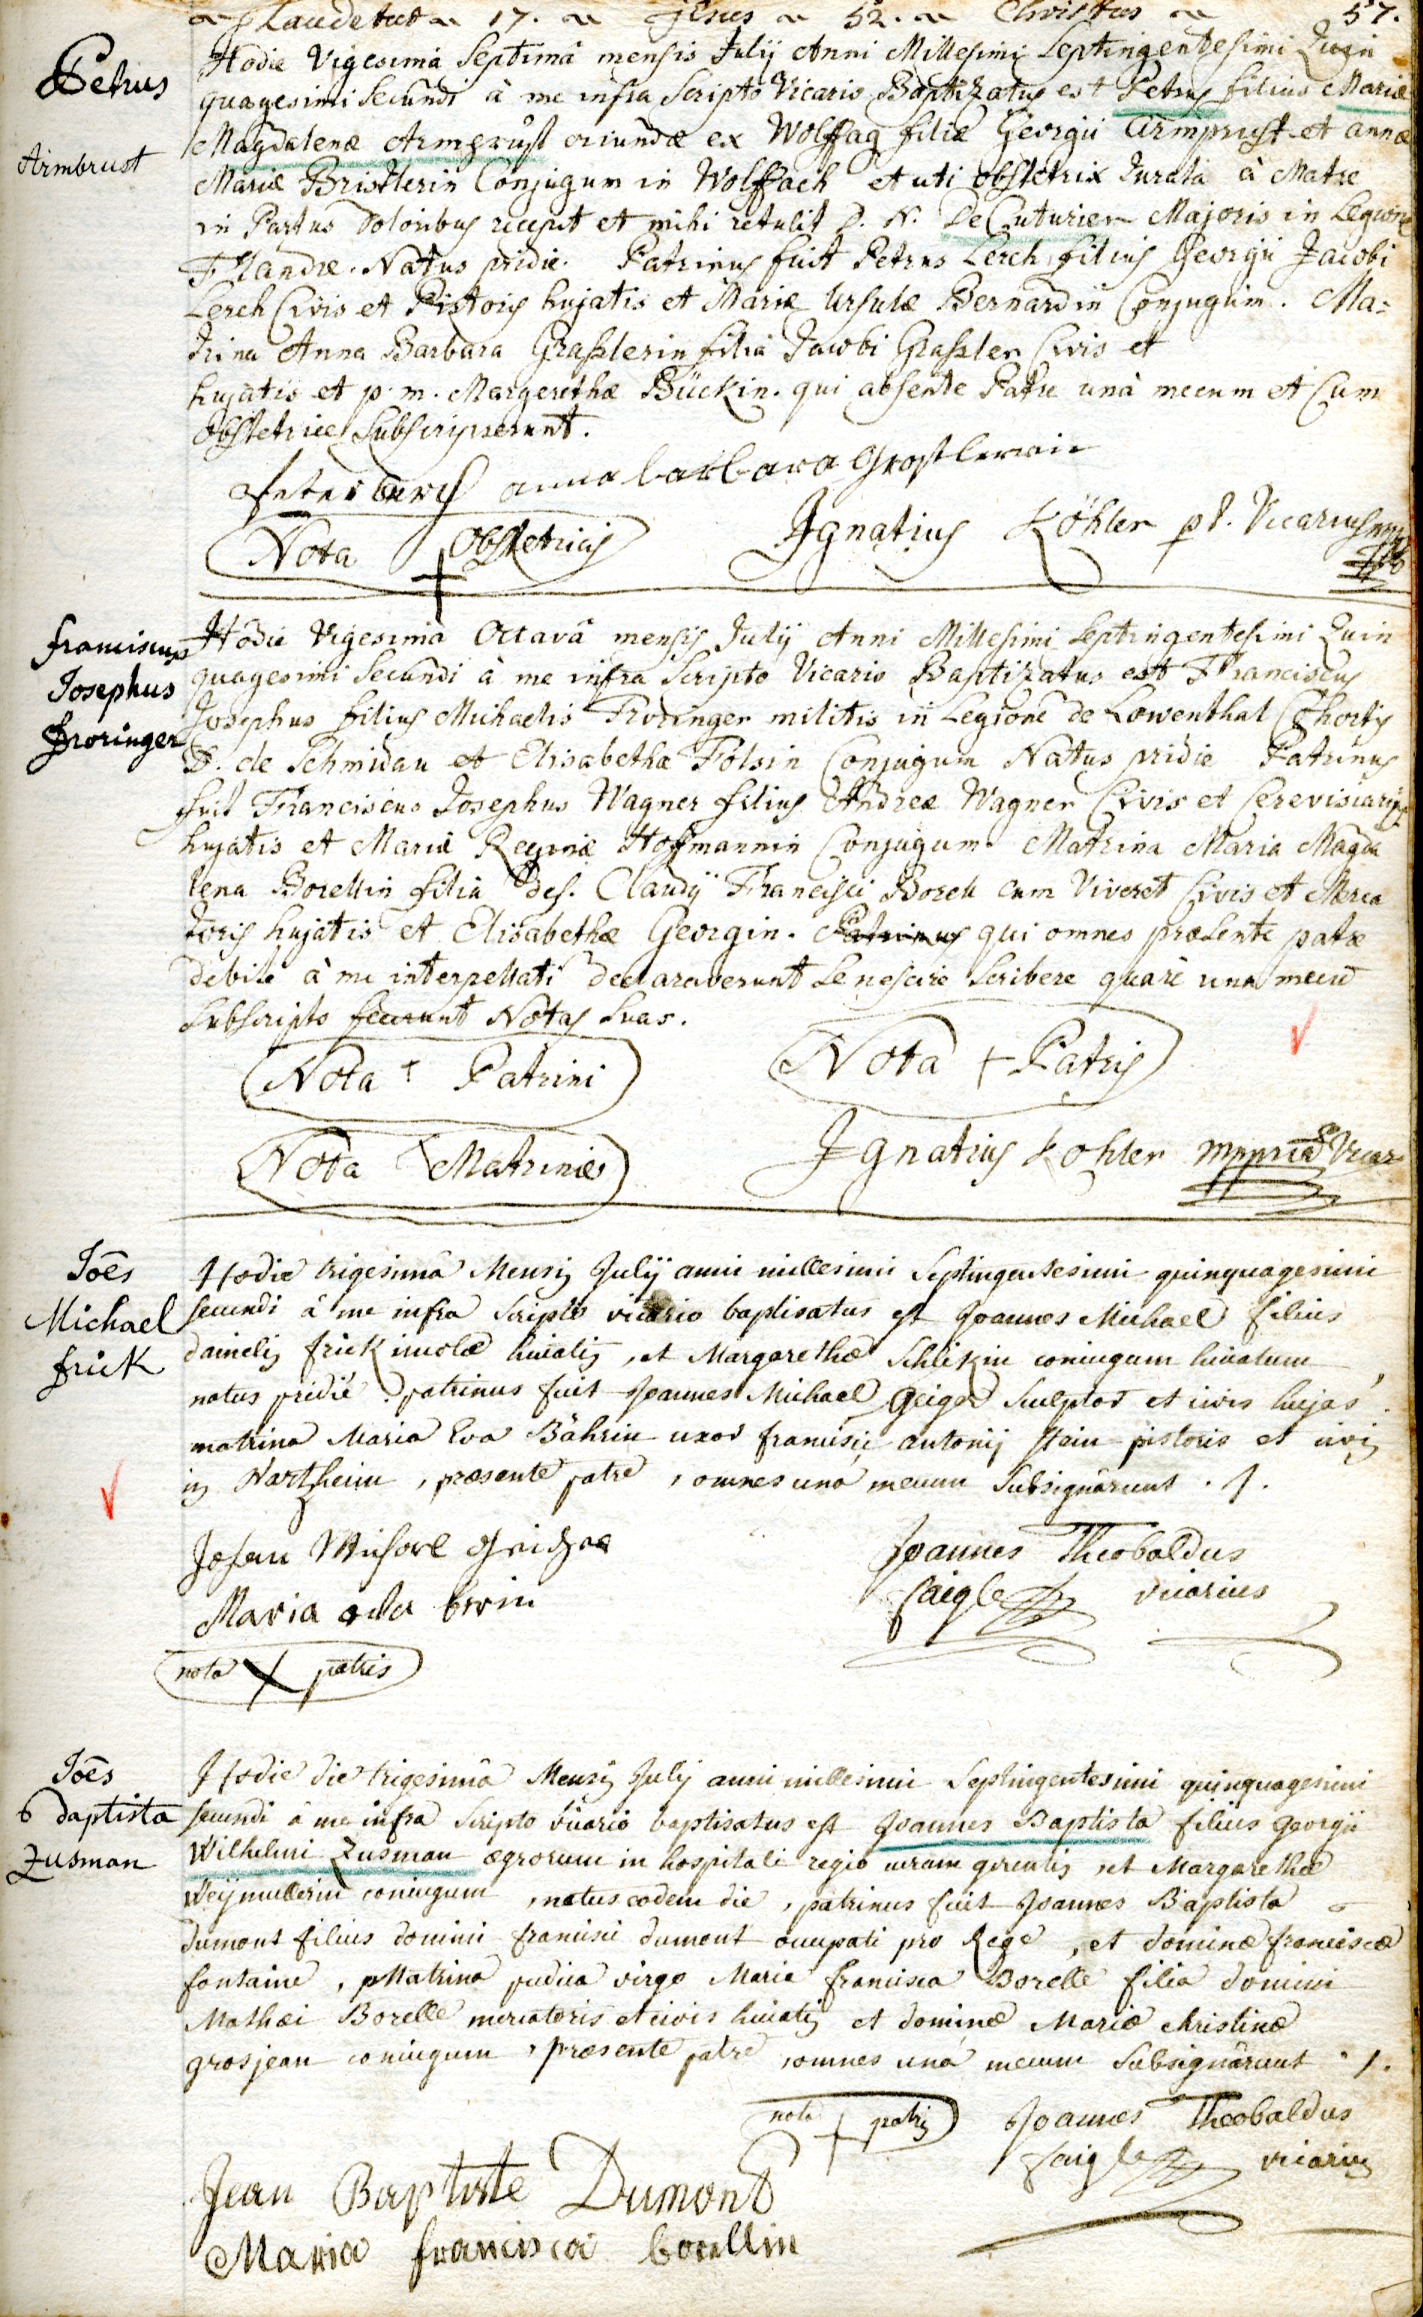 Laudetur 17. Jesus 52. Christus 57.
Petrus
Armbrust
Hodie Vigesimâ Septimâ mensis Julij Anni Millesimi Septingentesimi Quin
quagesimi secundi à me infra Scripto Vicario Baptizatus est Petrus filius Mariæ
Magdalenæ Armprust oriundæ ex Wolffag filiæ Georgii Armprust et annæ
Mariæ Bristlerin Conjugum in Wolffach et uti obstetrix Jurata à Matre
in Partus Doloribus recepit et mihi retulit D. N. De Cuturier Majoris in Legione
Flandræ. Natus pridie. Patrinus fuit Petrus Lerch filius Georgii Jacobi
Lerch Civis et Pistoris hujatis et Mariæ Ursulæ Bernardin Conjugum. Ma=
trina Anna Barbara Grasslerin filia Jacobi Grassler Civis et
hujatis et p. m. Margerethæ Bückin. qui absente Patre unà mecum et Cum
Obstetrice Subscripserunt.
anna barbara
Nota + Obstetricis
Ignatius Köhler pt. Vicarius mpp
Franciscus
Josephus
Froringer
Hodie Vigesimâ Octavâ mensis Julij Anni Millesimi Septingentesimi Quin
quagesimi Secundi à me infra Scripto Vicario Baptizatus est Franciscus
Josephus filius Michaelis Froringer militis in Legione de Lowenthal Cohortis
D. de Schmidau et Elisabethæ Folsin Conjugum Natus pridie Patrinus
fuit Franciscus Josephus Wagner filius Andreæ Wagner Civis et Cerevisiarij
hujatis et Mariæ Reginæ Hoffmannin Conjugum. Matrina Maria Magda
lena Borellin filia def. Claudij Francisci Borell cum Viveret Civis et Merca
toris hujatis et Elisabethæ Georgin. Patrinus qui omnes præsente patre
debite à me interpellati declaraverunt Se nescire Scribere quare una mecum
Subscripto fecerunt Notas Suas.
Nota + Patrini
Nota + Patris
Nota + Matrinæ
Ignatius Kohler mppria Vicar
Joēs
Michael
frick
Hodie trigesimâ Mensis Julij anni millesimi Septingentesimi quinquagesimi
secundi â me infra scripto vicario baptisatus est Joannes Michael filius
danielis frick incolæ huiatis, et Margarethæ Schlikin coniugum huiatum
natus pridie. patrinus fuit Joannes Michael Geiger Sculptor et civis hujas.
matrina Maria Eva Bährin uxor francisci antonij stain pistoris et civis
in Hartheim, præsente patre, omnes unâ mecum Subsignârunt. /.
Maria
Joannes Theobaldus
faigle vicarius
nota X patris
Joēs
baptista
Zusman
Hodie die trigesimâ Mensis Julij anni millesimi Septingentesimi quinquagesimi
secundi â me infra scripto vicario baptisatus est Joannes Baptista filius georgii
Wilhelmi Zusman ægrorum in hospitali regio curam gerentis, et Margarethæ
Weijmullerin coniugum, natus eodem die, patrinus fuit Joannes Baptista
dumont filius domini francisci dumont occupati pro Rege, et dominæ franciscæ
fontaine, Matrina pudica virgo Maria francisca Borelle filia domini
Mathæi Borelle mercatoris et civis huiatis et dominæ Mariæ christinæ
grosjean coniugum, præsente patre, omnes unâ mecum Subsignârunt. /.
nota + patris
Joannes Theobaldus
faigle vicarius
Jean Baptiste Dumont
Maria francisca borellin